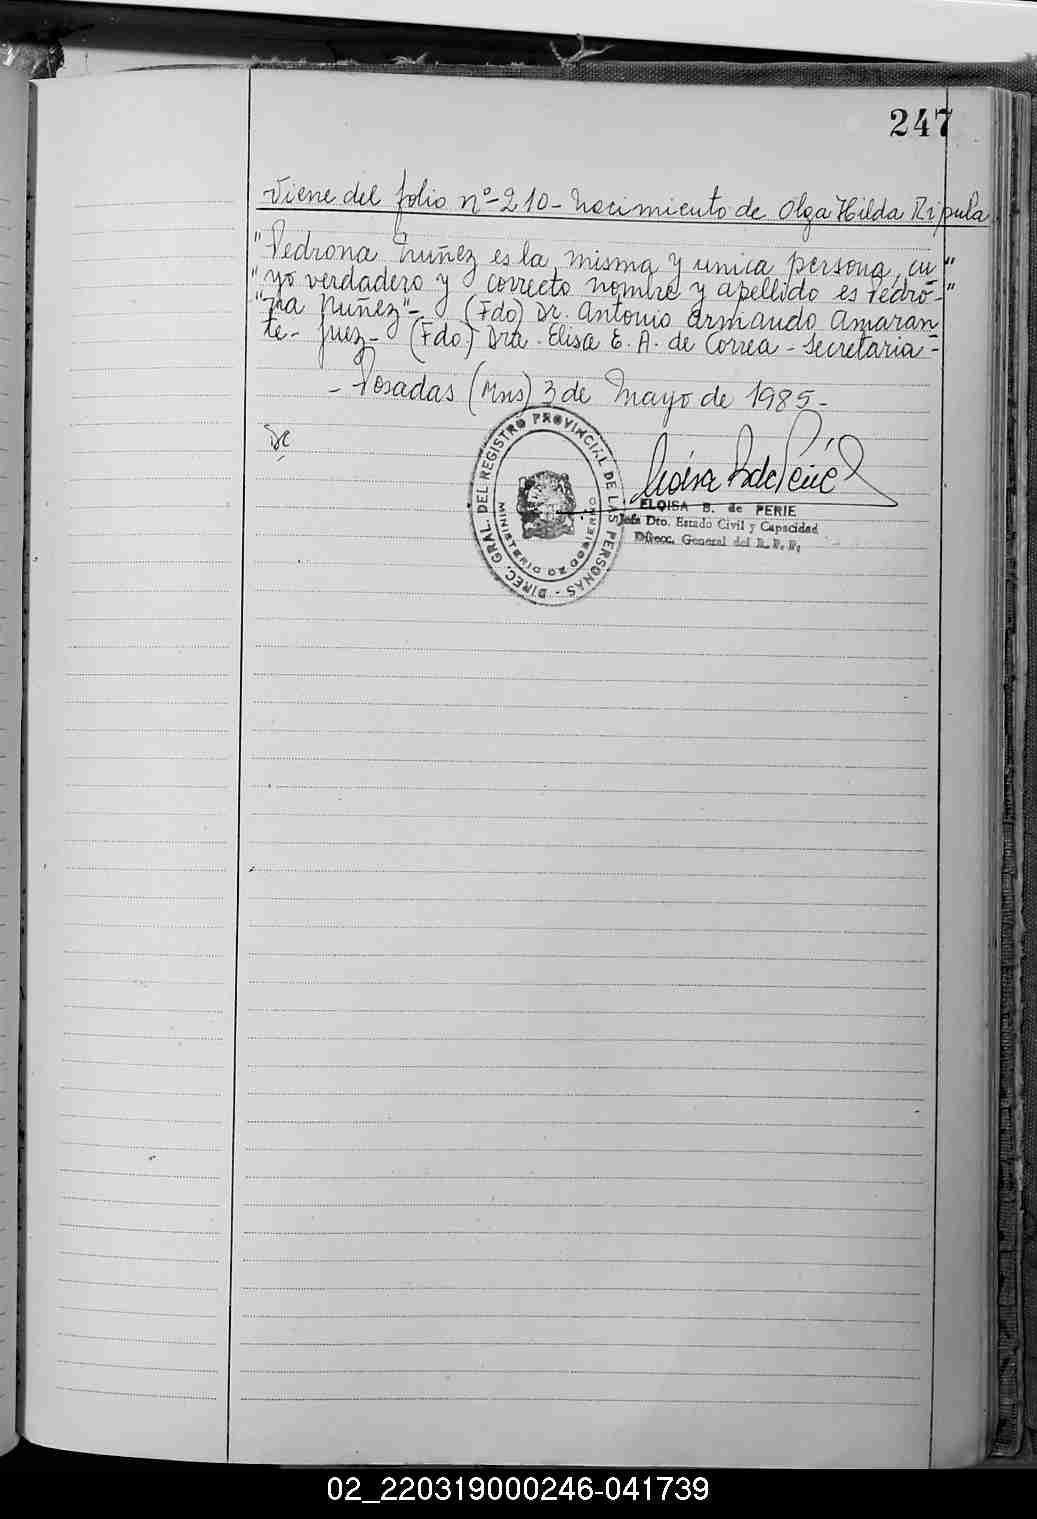 247
Viene del folio nº-210- Nacimiento de Olga Hilda Ripula
"Pedrona Nuñez es la misma y unica persona, cu"
"yo verdadero y correcto nombre y apellido es Pedro-"
"na Nuñez"- (Fdo) Dr. Antonio Armando Amaran
te- Juez- (Fdo) Dra. Elisa E. A. de Correa - Secretaria-
- Posadas (Mns) 3 de Mayo de 1985-
DIREC. GRAL. DEL REGISTRO PROVINCIAL DE LAS PERSONAS -
MINISTERIO DE GOBIERNO
ELOISA B. de PERIE
Jefa Dto. Estado Civil y Capacidad
Direcc. General del R. P. P.
02_220319000246-041739